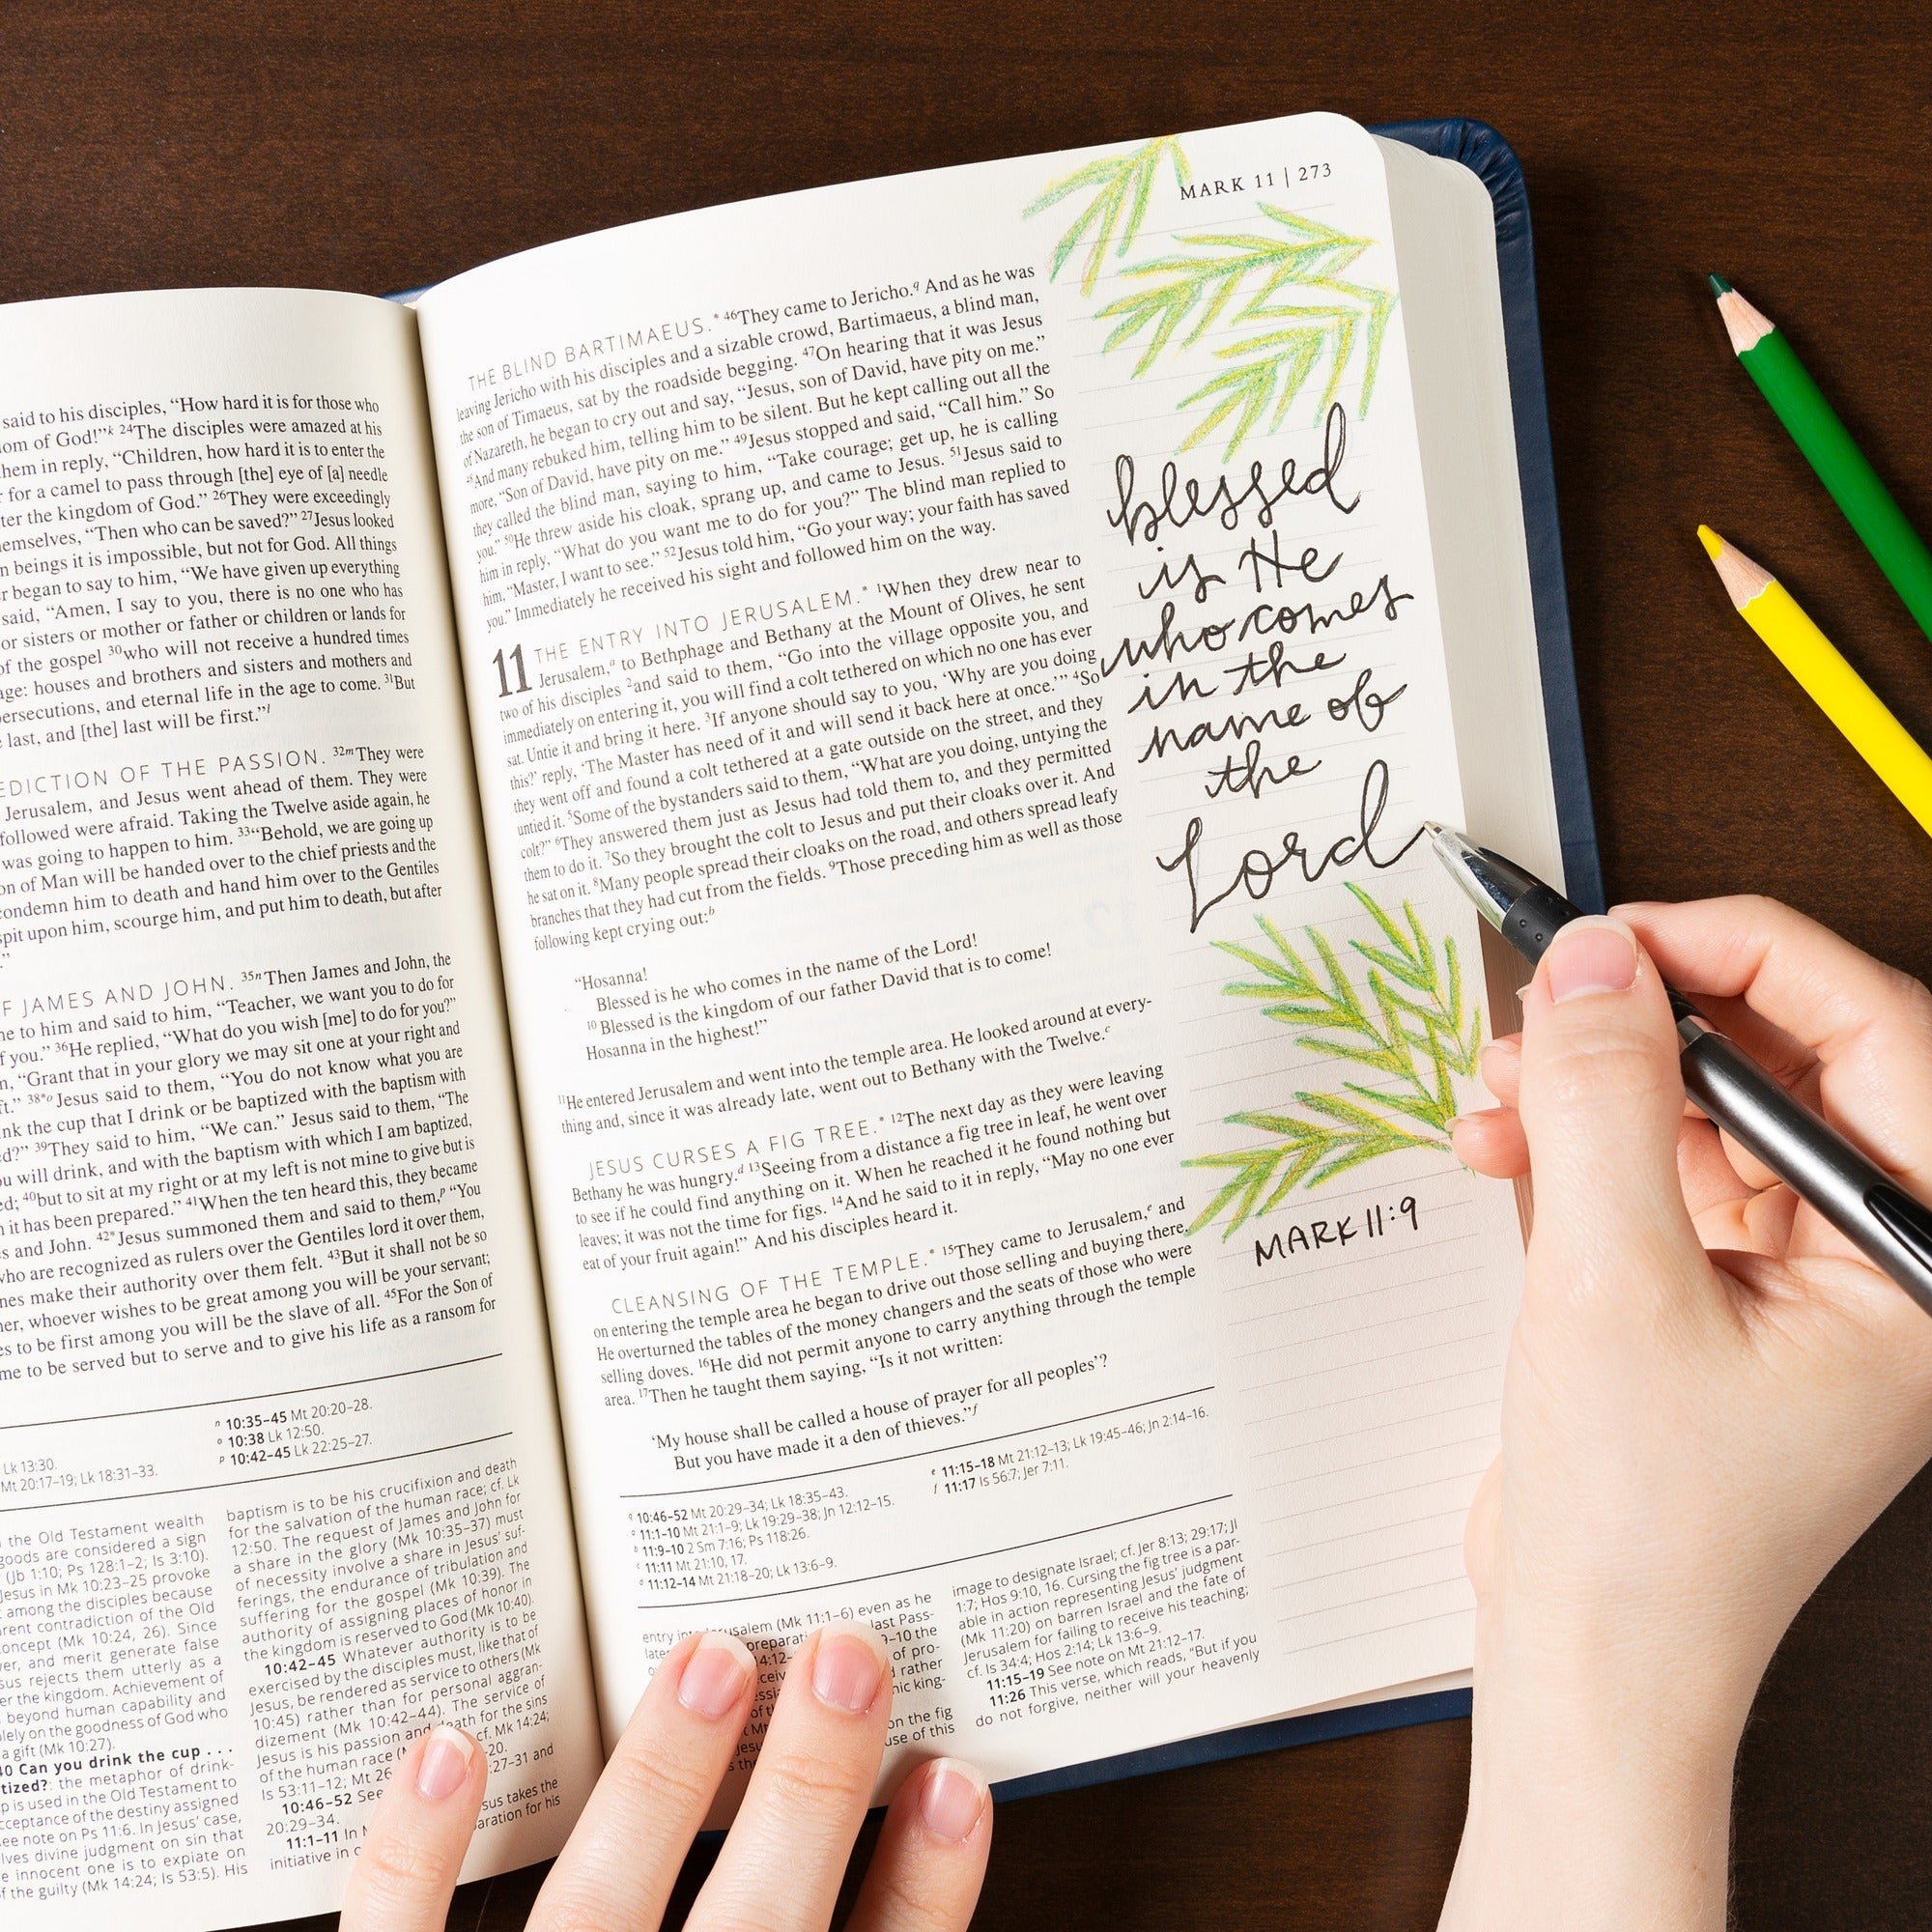 said to his disciples, “How hard it is for those who
dom of God!”ᵏ ²⁴The disciples were amazed at his
them in reply, “Children, how hard it is to enter the
for a camel to pass through [the] eye of [a] needle
ter the kingdom of God.” ²⁶They were exceedingly
emselves, “Then who can be saved?” ²⁷Jesus looked
n beings it is impossible, but not for God. All things
r began to say to him, “We have given up everything
said, “Amen, I say to you, there is no one who has
or sisters or mother or father or children or lands for
of the gospel ³⁰who will not receive a hundred times
age: houses and brothers and sisters and mothers and
persecutions, and eternal life in the age to come. ³¹But
last, and [the] last will be first.”ˡ
EDICTION OF THE PASSION. ³²ᵐThey were
Jerusalem, and Jesus went ahead of them. They were
followed were afraid. Taking the Twelve aside again, he
was going to happen to him. ³³“Behold, we are going up
on of Man will be handed over to the chief priests and the
condemn him to death and hand him over to the Gentiles
spit upon him, scourge him, and put him to death, but after
.”
F JAMES AND JOHN. ³⁵ⁿThen James and John, the
me to him and said to him, “Teacher, we want you to do for
f you.” ³⁶He replied, “What do you wish [me] to do for you?”
n, “Grant that in your glory we may sit one at your right and
ft.” ³⁸*ᵒJesus said to them, “You do not know what you are
nk the cup that I drink or be baptized with the baptism with
d?” ³⁹They said to him, “We can.” Jesus said to them, “The
u will drink, and with the baptism with which I am baptized,
ed; ⁴⁰but to sit at my right or at my left is not mine to give but is
m it has been prepared.” ⁴¹When the ten heard this, they became
s and John. ⁴²*Jesus summoned them and said to them,ᵖ “You
who are recognized as rulers over the Gentiles lord it over them,
nes make their authority over them felt. ⁴³But it shall not be so
her, whoever wishes to be great among you will be your servant;
es to be first among you will be the slave of all. ⁴⁵For the Son of
me to be served but to serve and to give his life as a ransom for
Lk 13:30.
Mt 20:17–19; Lk 18:31–33.
ⁿ 10:35–45 Mt 20:20–28.
ᵒ 10:38 Lk 12:50.
ᵖ 10:42–45 Lk 22:25–27.
the Old Testament wealth
goods are considered a sign
(Jb 1:10; Ps 128:1–2; Is 3:10).
esus in Mk 10:23–25 provoke
among the disciples because
arent contradiction of the Old
oncept (Mk 10:24, 26). Since
wer, and merit generate false
sus rejects them utterly as a
er the kingdom. Achievement of
beyond human capability and
lely on the goodness of God who
a gift (Mk 10:27).
40 Can you drink the cup . . .
tized?: the metaphor of drink-
p is used in the Old Testament to
cceptance of the destiny assigned
ee note on Ps 11:6. In Jesus’ case,
lves divine judgment on sin that
e innocent one is to expiate on
f the guilty (Mk 14:24; Is 53:5). His
baptism is to be his crucifixion and death
for the salvation of the human race; cf. Lk
12:50. The request of James and John for
a share in the glory (Mk 10:35–37) must
of necessity involve a share in Jesus’ suf-
ferings, the endurance of tribulation and
suffering for the gospel (Mk 10:39). The
authority of assigning places of honor in
the kingdom is reserved to God (Mk 10:40).
10:42–45 Whatever authority is to be
exercised by the disciples must, like that of
Jesus, be rendered as service to others (Mk
10:45) rather than for personal aggran-
dizement (Mk 10:42–44). The service of
Jesus is his passion and death for the sins
of the human race cf. Mk 14:24;
Is 53:11–12; Mt 26 –20.
10:46–52 See :27–31 and
20:29–34.
11:1–11 In sus takes the
initiative in paration for his
MARK 11 | 273
THE BLIND BARTIMAEUS.* ⁴⁶They came to Jericho.q And as he was
leaving Jericho with his disciples and a sizable crowd, Bartimaeus, a blind man,
the son of Timaeus, sat by the roadside begging. ⁴⁷On hearing that it was Jesus
of Nazareth, he began to cry out and say, “Jesus, son of David, have pity on me.”
⁴⁸And many rebuked him, telling him to be silent. But he kept calling out all the
more, “Son of David, have pity on me.” ⁴⁹Jesus stopped and said, “Call him.” So
they called the blind man, saying to him, “Take courage; get up, he is calling
you.” ⁵⁰He threw aside his cloak, sprang up, and came to Jesus. ⁵¹Jesus said to
him in reply, “What do you want me to do for you?” The blind man replied to
him, “Master, I want to see.” ⁵²Jesus told him, “Go your way; your faith has saved
you.” Immediately he received his sight and followed him on the way.
11 THE ENTRY INTO JERUSALEM.* ¹When they drew near to
Jerusalem,ᵃ to Bethphage and Bethany at the Mount of Olives, he sent
two of his disciples ²and said to them, “Go into the village opposite you, and
immediately on entering it, you will find a colt tethered on which no one has ever
sat. Untie it and bring it here. ³If anyone should say to you, ‘Why are you doing
this?’ reply, ‘The Master has need of it and will send it back here at once.’” ⁴So
they went off and found a colt tethered at a gate outside on the street, and they
untied it. ⁵Some of the bystanders said to them, “What are you doing, untying the
colt?” ⁶They answered them just as Jesus had told them to, and they permitted
them to do it. ⁷So they brought the colt to Jesus and put their cloaks over it. And
he sat on it. ⁸Many people spread their cloaks on the road, and others spread leafy
branches that they had cut from the fields. ⁹Those preceding him as well as those
following kept crying out:ᵇ
“Hosanna!
Blessed is he who comes in the name of the Lord!
¹⁰Blessed is the kingdom of our father David that is to come!
Hosanna in the highest!”
¹¹He entered Jerusalem and went into the temple area. He looked around at every-
thing and, since it was already late, went out to Bethany with the Twelve.ᶜ
JESUS CURSES A FIG TREE.* ¹²The next day as they were leaving
Bethany he was hungry.ᵈ ¹³Seeing from a distance a fig tree in leaf, he went over
to see if he could find anything on it. When he reached it he found nothing but
leaves; it was not the time for figs. ¹⁴And he said to it in reply, “May no one ever
eat of your fruit again!” And his disciples heard it.
CLEANSING OF THE TEMPLE.* ¹⁵They came to Jerusalem,ᵉ and
on entering the temple area he began to drive out those selling and buying there.
He overturned the tables of the money changers and the seats of those who were
selling doves. ¹⁶He did not permit anyone to carry anything through the temple
area. ¹⁷Then he taught them saying, “Is it not written:
‘My house shall be called a house of prayer for all peoples’?
But you have made it a den of thieves.”ᶠ
q 10:46–52 Mt 20:29–34; Lk 18:35–43.
ᵃ 11:1–10 Mt 21:1–9; Lk 19:29–38; Jn 12:12–15.
ᵇ 11:9–10 2 Sm 7:16; Ps 118:26.
ᶜ 11:11 Mt 21:10, 17.
ᵈ 11:12–14 Mt 21:18–20; Lk 13:6–9.
ᵉ 11:15–18 Mt 21:12–13; Lk 19:45–46; Jn 2:14–16.
ᶠ 11:17 Is 56:7; Jer 7:11.
entry into Jerusalem (Mk 11:1–6) even as he
last Pass-
9–10 the
of pro-
rather
nic king-
on the fig
use of this
image to designate Israel; cf. Jer 8:13; 29:17; Jl
1:7; Hos 9:10, 16. Cursing the fig tree is a par-
able in action representing Jesus’ judgment
(Mk 11:20) on barren Israel and the fate of
Jerusalem for failing to receive his teaching;
cf. Is 34:4; Hos 2:14; Lk 13:6–9.
11:15–19 See note on Mt 21:12–17.
11:26 This verse, which reads, “But if you
do not forgive, neither will your heavenly
blessed
is He
who comes
in the
name of
the
Lord
MARK 11:9